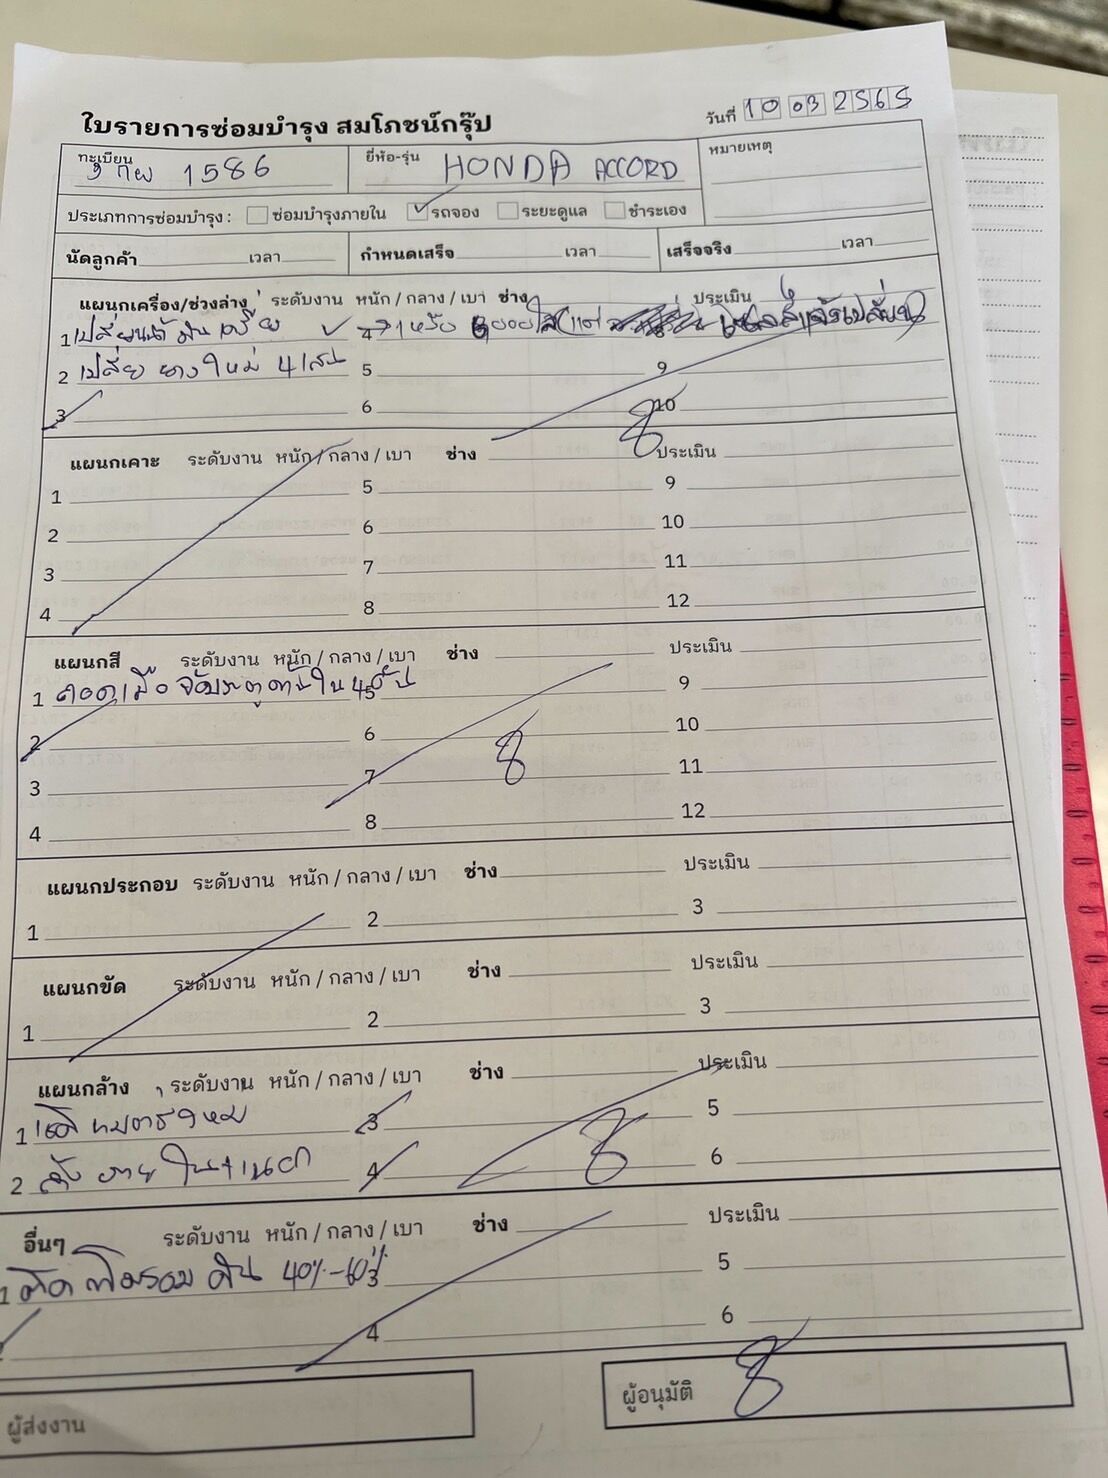 ใบรายการซ่อมบำรุง สมโภชน์กรุ๊ป
วันที่ 10 03 2565
ทะเบียน 1586
ยี่ห้อ-รุ่น HONDA ACCORD
หมายเหตุ
ประเภทการซ่อมบำรุง : ซ่อมบำรุงภายใน รถจอง ระยะดูแล ชำระเอง
นัดลูกค้า เวลา กำหนดเสร็จ เวลา เสร็จจริง เวลา
แผนกเครื่อง/ช่วงล่าง ระดับงาน หนัก / กลาง / เบา ช่าง ประเมิน
1 เปลี่ยน 4
2 เปลี่ย ยางใหม่ 4 เส้น 5 9
3 6 10
แผนกเคาะ ระดับงาน หนัก / กลาง / เบา ช่าง ประเมิน
1 5 9
2 6 10
3 7 11
4 8 12
แผนกสี ระดับงาน หนัก / กลาง / เบา ช่าง ประเมิน
1 ประตูด้านใน 4 9
2 6 10
3 7 11
4 8 12
แผนกประกอบ ระดับงาน หนัก / กลาง / เบา ช่าง ประเมิน
1 2 3
แผนกขัด ระดับงาน หนัก / กลาง / เบา ช่าง ประเมิน
1 2 3
แผนกล้าง ระดับงาน หนัก / กลาง / เบา ช่าง ประเมิน
1 3 5
2 4 6
อื่นๆ ระดับงาน หนัก / กลาง / เบา ช่าง ประเมิน
1 ติด ฟิล์มรอบคัน 40%-60% 3 5
4 6
ผู้ส่งงาน
ผู้อนุมัติ